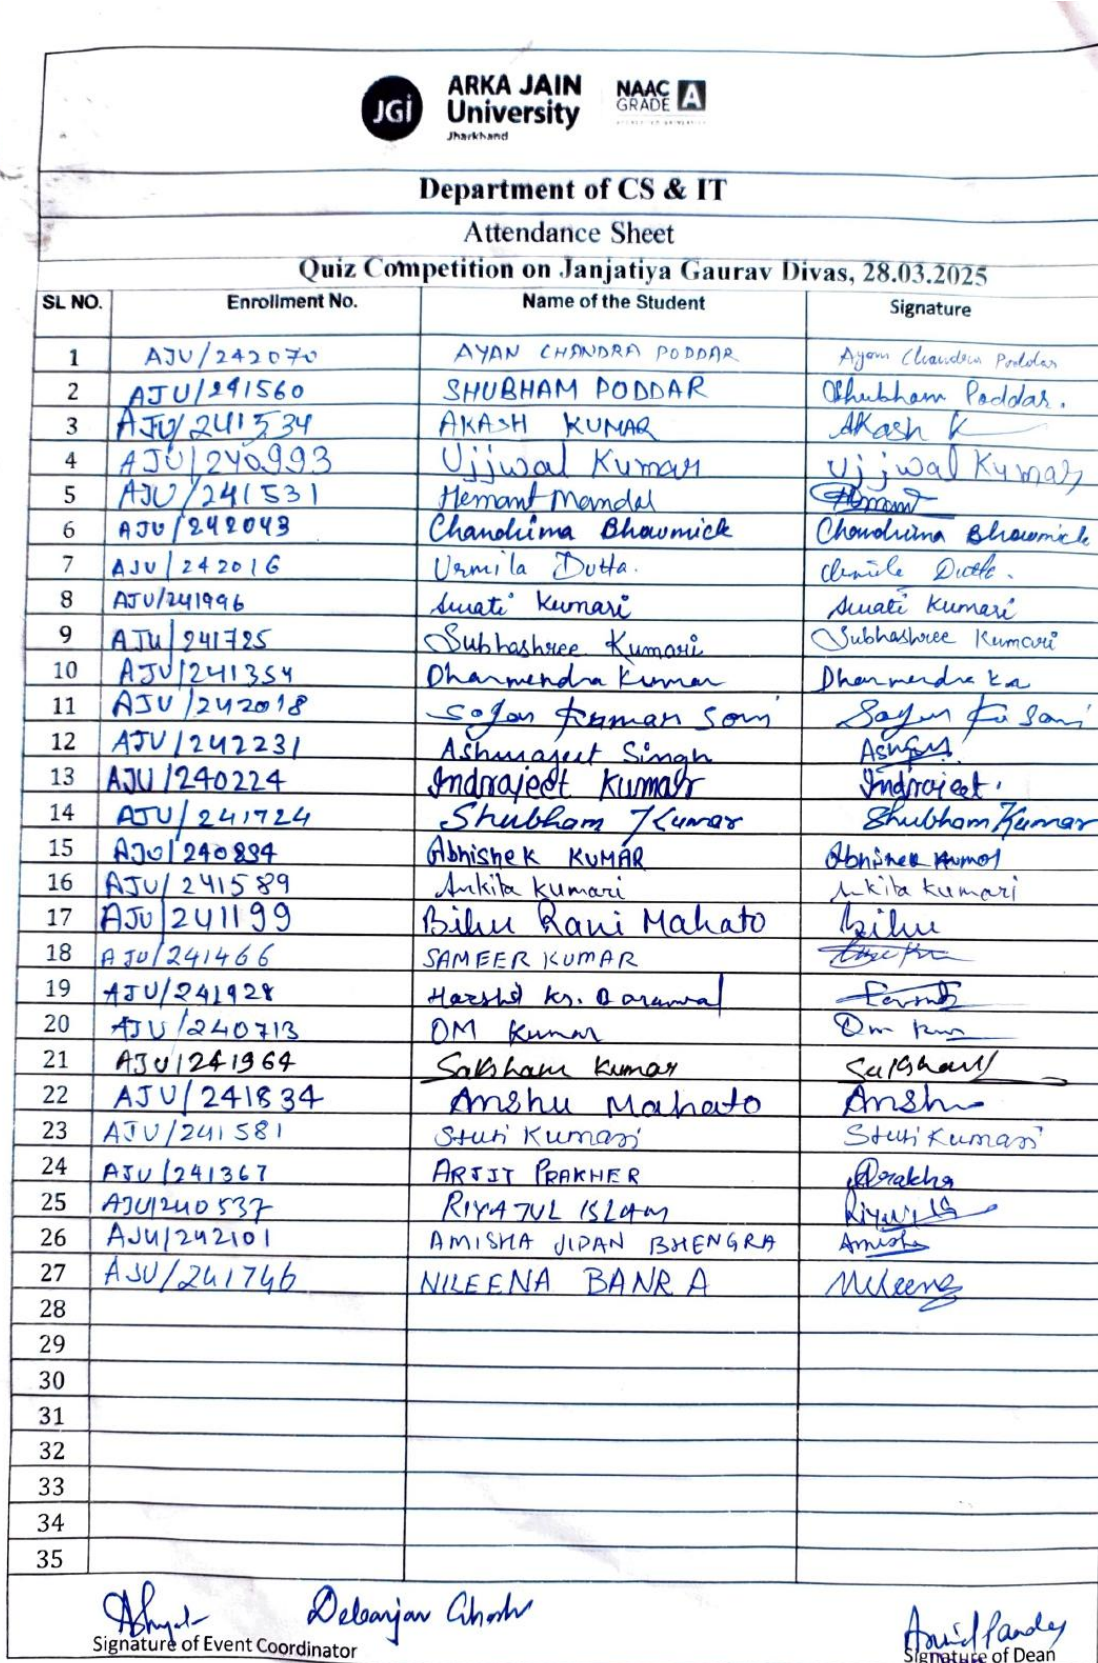 JGi
ARKA JAIN
University
Jharkhand
NAAC
GRADE A
Department of CS & IT
Attendance Sheet
Quiz Competition on Janjatiya Gaurav Divas, 28.03.2025
SL NO. Enrollment No. Name of the Student Signature
1 AJU/242070 AYAN CHANDRA PODDAR Ayan Chandra Poddar
2 AJU/241560 SHUBHAM PODDAR Shubham Poddar.
3 AJU/241534 AKASH KUMAR AKash K
4 AJU/240993 Ujjwal Kumar Ujjwal Kumar
5 AJU/241531 Hemant Mandal Hemant
6 AJU/242043 Chandrima Bhowmick Chandrima Bhowmick
7 AJU/242016 Urmila Dutta. Urmila Dutta.
8 AJU/241996 Swati Kumari Swati Kumari
9 AJU/241725 Subhashree Kumari Subhashree Kumari
10 AJU/241354 Dharmendra Kumar Dharmendra Ku
11 AJU/242018 Kumar Soni Soni
12 AJU/242231 Ashwajeet Singh
13 AJU/240224 Indrajeet Kumar Indrajeet.
14 AJU/241724 Shubham Kumar Shubham Kumar
15 AJU/240894 Abhishek KUMAR Abhishek Kumar
16 AJU/241589 Ankita Kumari Ankita Kumari
17 AJU/241199 Bihu Rani Mahato Bihu
18 AJU/241466 SAMEER KUMAR
19 AJU/241928 Harshit Kr.
20 AJU/240713 OM Kumar Om Kumar
21 AJU/241964 Saksham Kumar Saksham
22 AJU/241834 Anshu Mahato Anshu
23 AJU/241581 Stuti Kumari Stuti Kumari
24 AJU/241367 ARJIT PRAKHER Prakher
25 AJU/240537 RIYAJUL ISLAM
26 AJU/242101 AMISHA JIPAN BHENGRA Amisha
27 AJU/241746 NILEENA BANRA Nileena
28
29
30
31
32
33
34
35
Debanjan Ghosh
Signature of Event Coordinator
Arvind Pandey
Signature of Dean